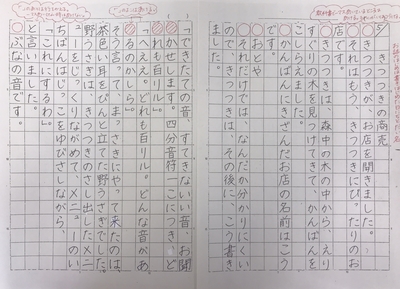 きつつきの商売
きつつきが、お店を開きました。
それはもう、きつつきにぴったりのお
店です。
きつつきは、森中の木の中から、えり
すぐりの木を見つけてきて、かんばんを
こしらえました。
かんばんにきざんだお店の名前は、こう
です。
おとや
それだけでは、なんだか分かりにくい
ので、きつつきは、その後に、こう書き
「できたての音、すてきないい音、お聞
かせします。四分音符一こにつき、ど
れも百リル。」
「へえ。どれも百リル。どんな音があ
るのかしら。」
そう言って、まっさきにやって来たのは、
茶色い耳をぴんと立てた野うさぎでした。
野うさぎは、きつつきのさし出したメニ
ューをじっくりながめて、メニューのい
ちばんはじっこをゆびさしながら、
「これにするわ。」
と言いました。
ぶなの音です。